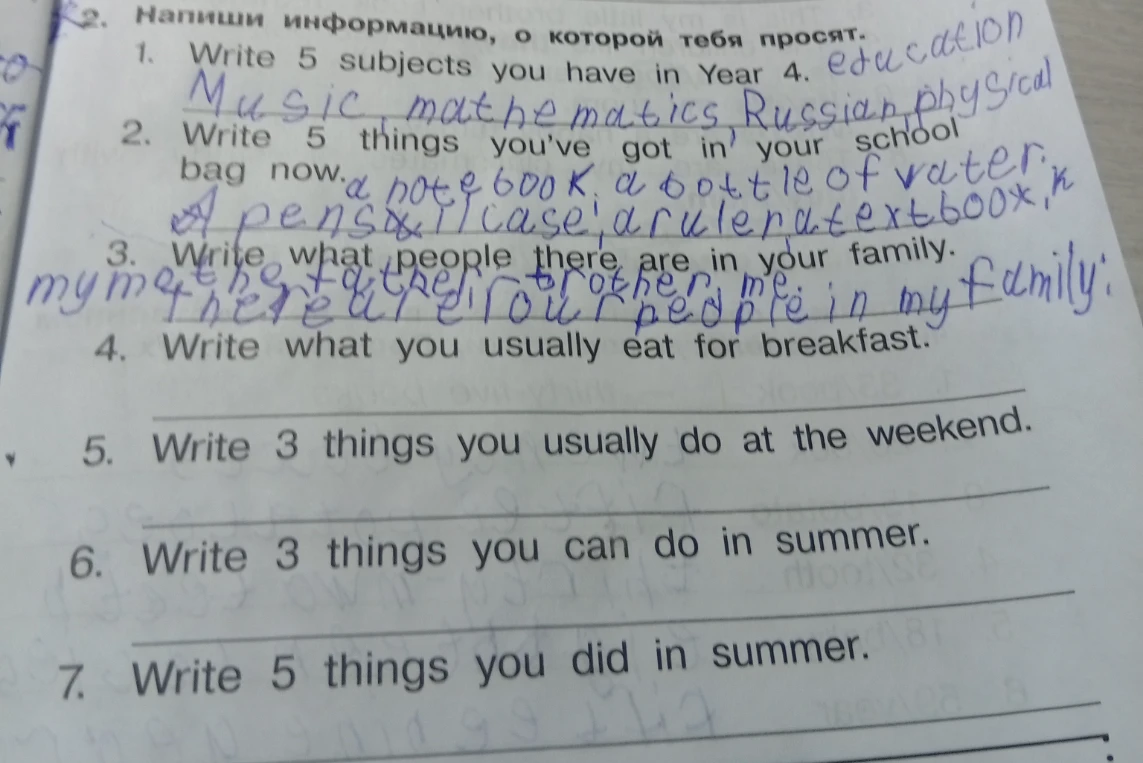 2. Напиши информацию, о которой тебя просят.
1. Write 5 subjects you have in Year 4. education
Music, mathematics, Russian, physical
2. Write 5 things you've got in your school
bag now. a notebook, a bottle of vater.
A pensil case, a ruler, a textbook,
3. Write what people there are in your family.
my mother, father, brother, me.
there are four people in my family.
4. Write what you usually eat for breakfast.
5. Write 3 things you usually do at the weekend.
6. Write 3 things you can do in summer.
7. Write 5 things you did in summer.